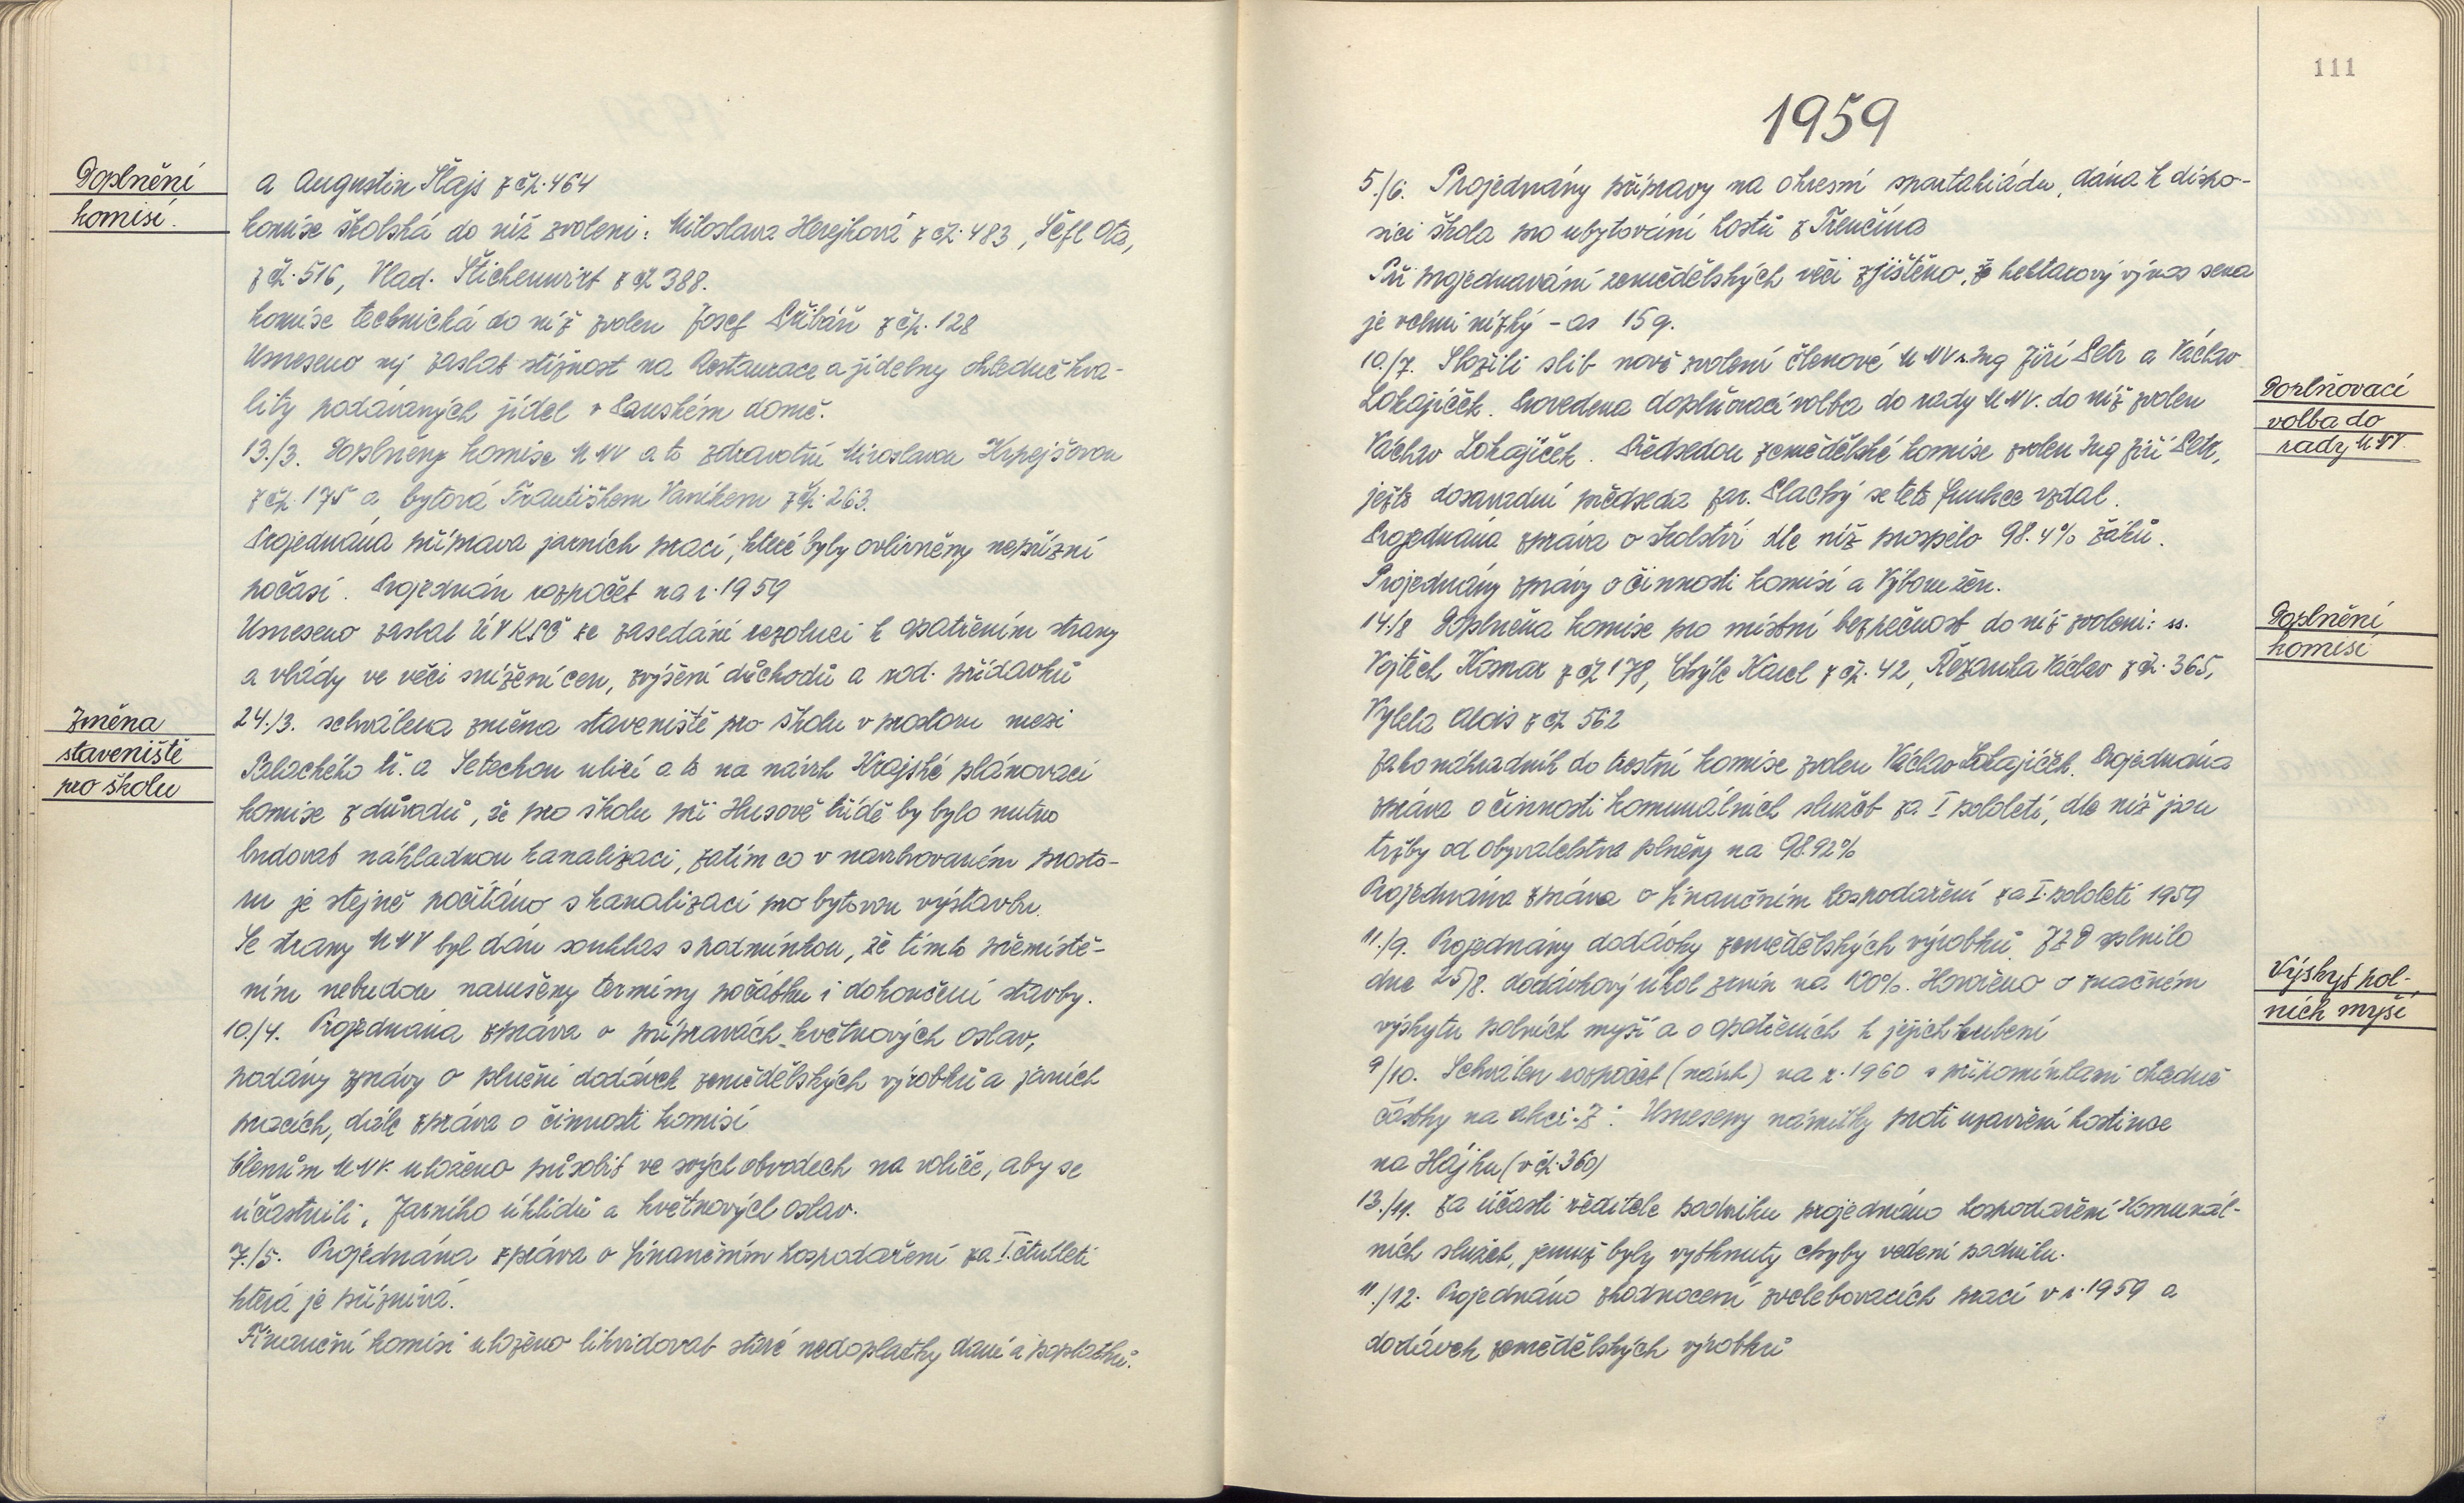 Doplnění
komisí.
a Augustin Šlajs z čp. 464
komise školská do níž zvoleni: Miloslava Herejková z čp. 483, Šéfl Ota,
z čp. 516, Vlad. Štichenwirt z čp 388.
komise technická do níž zvolen Josef Stibář z čp. 128
Usneseno zaslat stížnost na Restaurace a jídelny ohledně kva-
lity podávaných jídel v Panském domě.
13./3. Doplněny komise MNV a to zdravotní Miroslavou Krpejšovou
z čp. 175 a bytová Františkem Vaníkem z čp. 263.
Projednána příprava jarních prací, které byly ovlivněny nepřízní
počasí. Projednán rozpočet na r. 1959
Usneseno zaslat ÚV KSČ ze zasedání rezoluci k opatřením strany
a vlády ve věci snížení cen, zvýšení důchodů a rod. přídavků
Změna
staveniště
pro školu
24./3. schválena změna staveniště pro školu v prostoru mezi
Palackého tř. a Setechou ulicí a to na návrh Krajské plánovací
komise z důvodů, že pro školu při Husově třídě by bylo nutno
budovat nákladnou kanalizaci, zatím co v navrhovaném prosto-
ru je stejně počítáno s kanalizací pro bytovou výstavbu.
Se strany MNV byl dán souhlas s podmínkou, že tímto přemístě-
ním nebudou narušeny termíny počátku i dokončení stavby.
10./4. Projednána zpráva o přípravách květnových oslav,
podány zprávy o plnění dodávek zemědělských výrobků a jarních
pracích, dále zpráva o činnosti komisí
členům MNV. uloženo působit ve svých obvodech na voliče, aby se
účastnili, Jarního úklidu a květnových oslav.
7./5. Projednána zpráva o finančním hospodaření za I. čtvtletí
která je příznivá.
Finanční komisi uloženo likvidovat staré nedoplatky daní a poplatků.
111
1959
5./6. Projednány přípravy na okresní spartakiádu, dána k dispo-
sici škola pro ubytování hostů z Trenčína
Při projednávání zemědělských věcí zjištěno, že hektarový výnos sena
je velmi nízký - as 15 q.
10./7. Složili slib nově zvolení členové MNV s. Ing Jiří Petr a Václav
Lokajíček. Provedena doplňovací volba do rady MNV. do níž zvolen
Václav Lokajíček. Předsedou zemědělské komise zvolen Ing Jiří Petr,
ježto dosavadní předseda Jar. Plachý se této funkce vzdal.
Projednána zpráva o školství dle níž prospělo 98.4% žáků.
Projednány zprávy o činnosti komisí a Výboru žen.
Doplňovací
volba do
rady MNV.
14./8 Doplněna komise pro místní bezpečnost do níž zvoleni: ss.
Vojtěch Komar z čp 178, Chýle Karel z čp. 42, Řezanka Václav z čp. 365,
Vylela Alois z čp 562
Jako náhradník do trestní komise zvolen Václav Lokajíček. Projednána
zpráva o činnosti komunálních služeb za I pololetí, dle níž jsou
tržby od obyvatelstva plněny na 98.92%
Projednána zpráva o finančním hospodaření za I. pololetí 1959
Doplnění
komisí
11./9. Projednány dodávky zemědělských výrobků. JZD splnilo
dne 25/8. dodávkový úkol zrnin na 100%. Hovořeno o značném
výskytu polních myší a o opatřeních k jejich hubení
Výskyt pol-
ních myší
9/10. Schválen rozpočet (návrh) na r. 1960 s připomínkami ohledně
částky na akci-Z: Usneseny námitky proti uzavření hostince
na Hájku (v čp. 360)
13./11. Za účasti ředitele podniku projednáno hospodaření Komunál-
ních služeb, jemuž byly vytknuty chyby vedení podniku.
11./12. Projednáno zhodnocení zvelebovacích prací v r. 1959 a
dodávek zemědělských výrobků